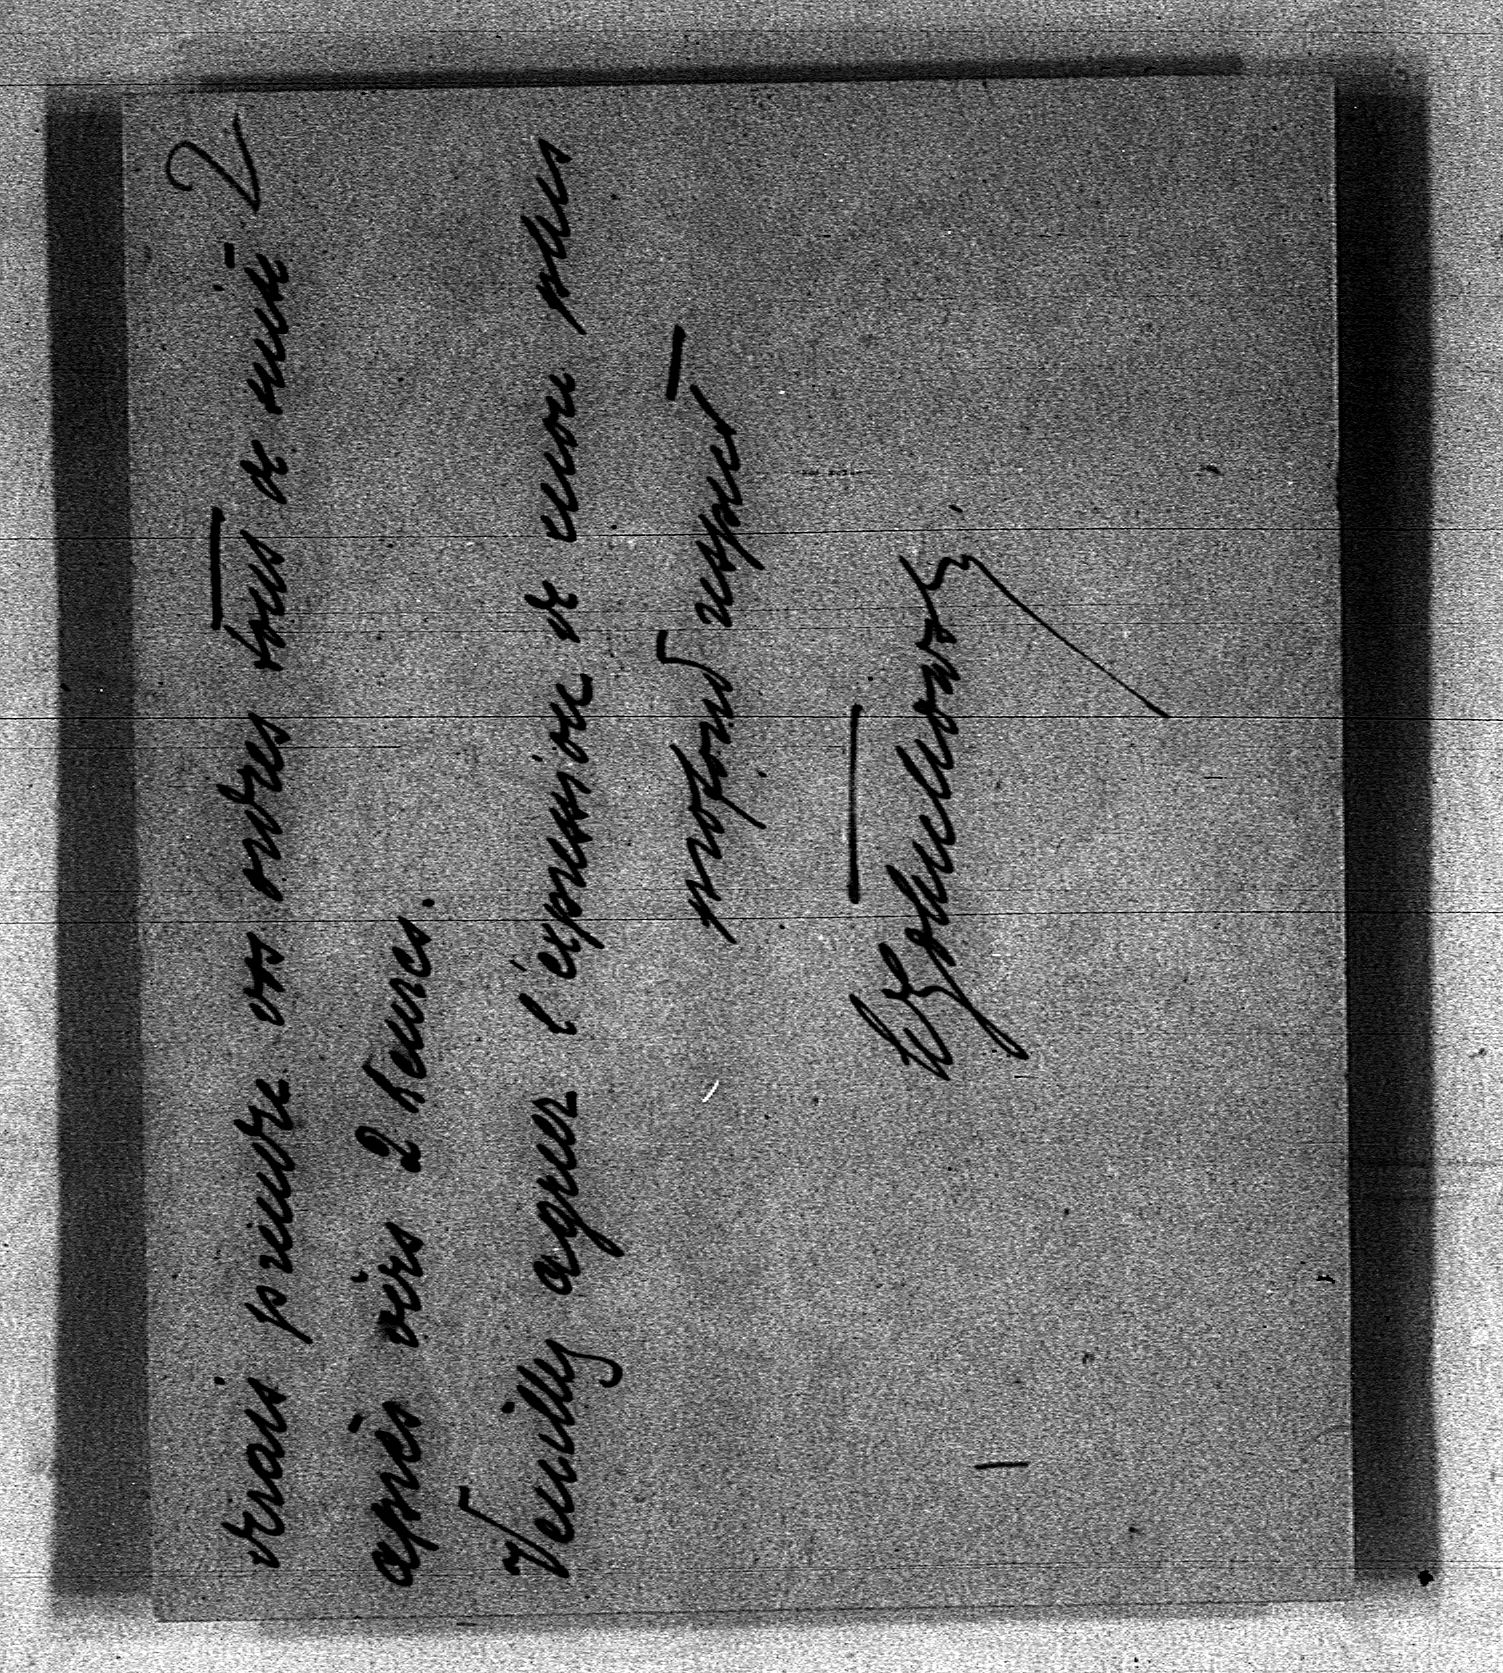 2
drais prendre vos ordres tout de suite
après vers 2 heures.
Veuillez agréer l'expression de mon plus
profond respect